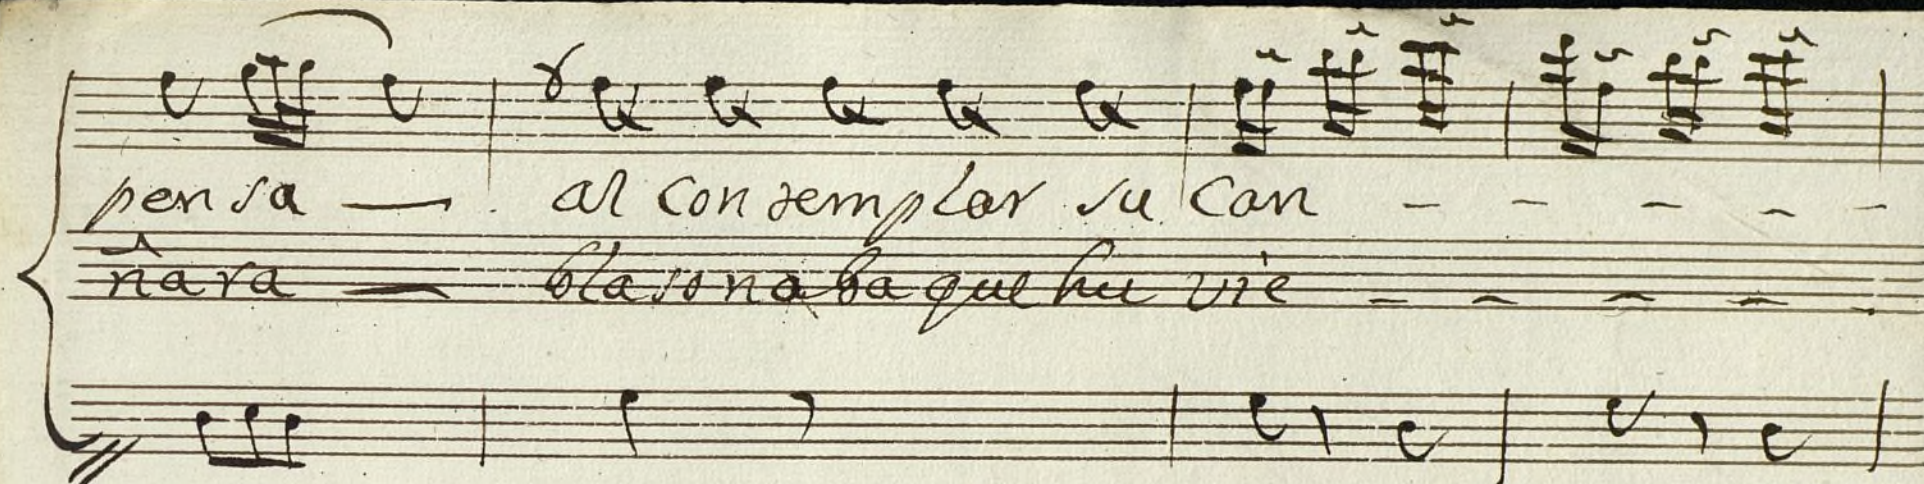 pensa — al contemplar su Can - - - - -
ñara — blasonaba que hu vie - - - - -